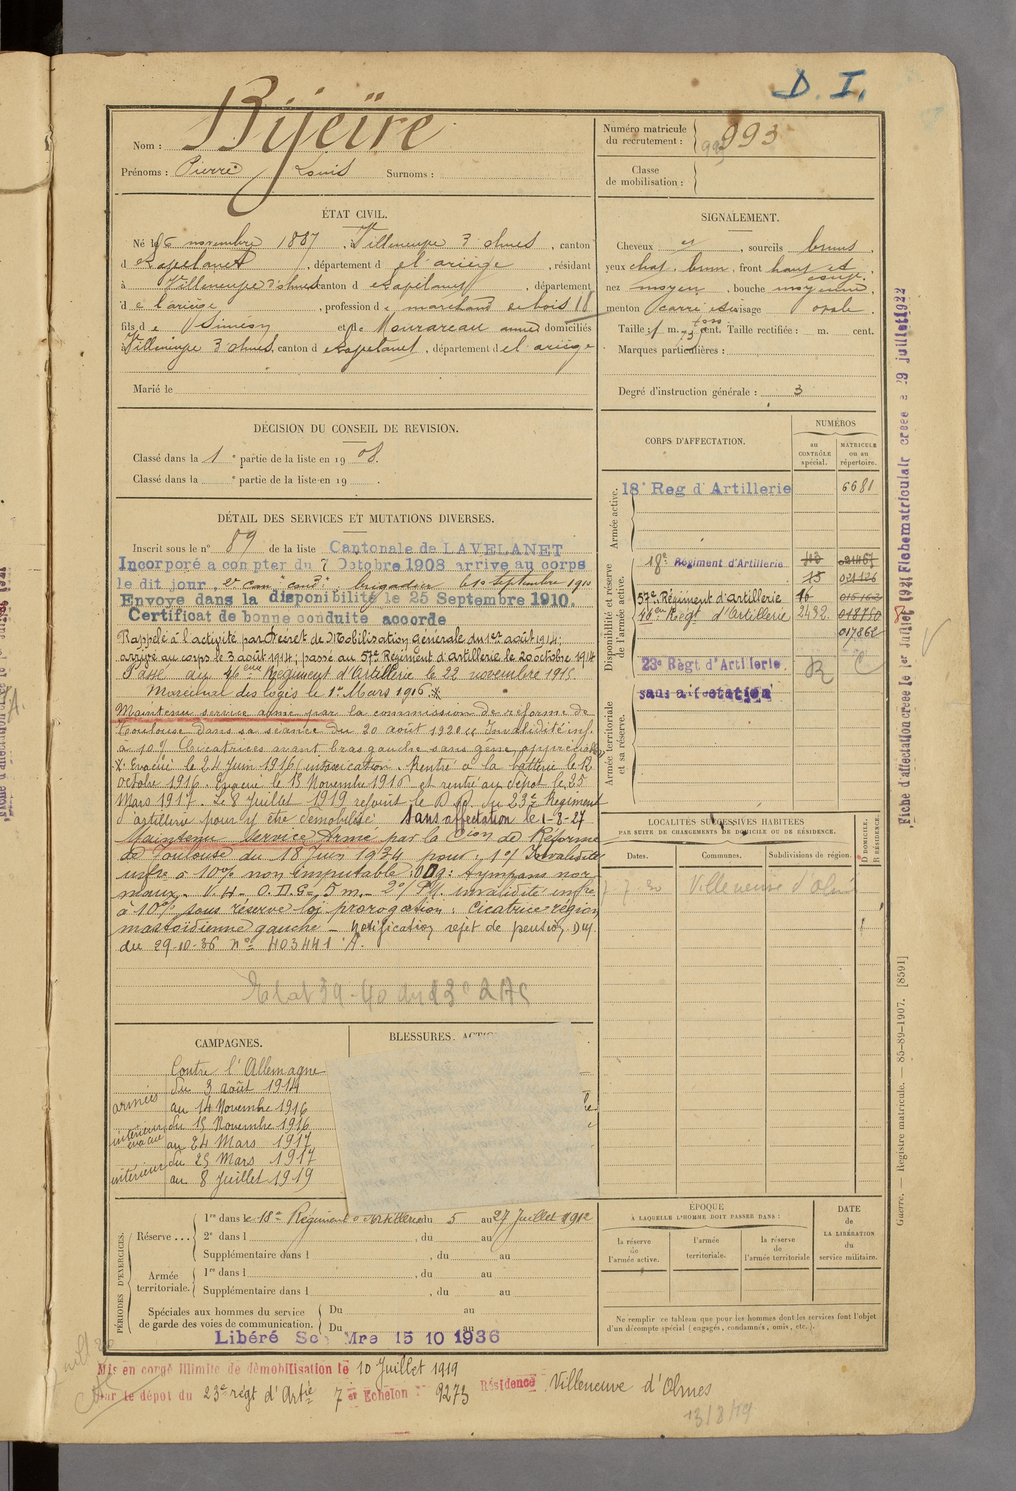 D. I.
Nom : Bijeïre
Prénoms : Pierre Louis Surnoms :
Numéro matricule du recrutement : 993
Classe de mobilisation :
ÉTAT CIVIL.
Né le 6 novembre 1887, Villeneuve d'olmes, canton
d e Lavelanet, département d e l'ariège, résidant
à Villeneuve d'olmes canton d e Lavelanet, département
d e l'ariège, profession d e marchand de bois 18
fils d e Siméon et de Mourareau anna domiciliés
Villeneuve d'olmes, canton d e Lavelanet, département d e l'ariège
Marié le
SIGNALEMENT.
Cheveux , sourcils bruns,
yeux chat. brun, front haut et
nez moyen, bouche moyenne,
menton carré visage ovale.
Taille : 1 m. 73 cent. Taille rectifiée : m. cent.
Marques particulières :
Degré d'instruction générale : 3
DÉCISION DU CONSEIL DE REVISION.
Classé dans la 1e partie de la liste en 1908.
Classé dans la e partie de la liste en 19 .
DÉTAIL DES SERVICES ET MUTATIONS DIVERSES.
Inscrit sous le n° 89 de la liste Cantonale de LAVELANET
Incorporé a compter du 7 Octobre 1908 arrive au corps
le dit jour, 2e can. cond. brigadier le 10 Septembre 1910
Envoye dans la disponibilité le 25 Septembre 1910.
Certificat de bonne conduite accorde
Rappelé à l'activité par Décret de Mobilisation générale du 1er août 1914;
arrivé au corps le 3 août 1914; passé au 57e Régiment d'artillerie le 20 octobre 1914
Passé au 46ème Régiment d'Artillerie le 22 novembre 1915.
Maréchal des logis le 1er Mars 1916. *
Maintenu service armé par la commission de réforme de
Toulouse dans sa séance du 20 août 1920 "Invalidité inf.
à 10% Cicatrices avant bras gauche sans gène appréciable"
* Evacué le 24 Juin 1916 (intoxication. Rentré à la batterie le 12
octobre 1916. Evacué le 15 Novembre 1916 et rentré au dépôt le 25
Mars 1917. Le 8 Juillet 1919 rejoint le D. du 23e Régiment
d'artillerie pour y être démobilisé. Sans affectation le 1-8-27
Maintenu Service Armé par la Cion de Réforme
de Toulouse du 18 Juin 1934 pour : 1°/ Invalidité
infre à 10% non imputable : ODG : tympans nor-
maux. V.H. O.D.G. 5m. 2°/ P.M. invalidité infre
à 10% sous réserve loi prorogation : cicatrice région
mastoïdienne gauche - Notification rejet de pension D.M.
du 29-10-36 N° 403441 A.
Etat 39-40 du 23e
CORPS D'AFFECTATION.
NUMÉROS
au CONTRÔLE spécial.
MATRICULE ou au répertoire.
Armée active.
18e Reg d'Artillerie 6681
Disponibilité et réserve de l'armée active.
18e Régiment d'Artillerie
57e Régiment d'artillerie 16
46ème Régt d'Artillerie 2432 018750
017862
Armée territoriale et sa réserve.
23e Règt d'Artillerie. R C
sans affectation
LOCALITÉS SUCCESSIVES HABITÉES
PAR SUITE DE CHANGEMENTS DE DOMICILE OU DE RÉSIDENCE.
Dates. Communes. Subdivisions de région.
D DOMICILE. R RÉSIDENCE.
7-7-30 Villeneuve d'Olmes
CAMPAGNES.
Contre l'Allemagne
armées du 3 août 1914
au 14 Novembre 1916
intérieur évacué du 15 Novembre 1916
au 24 Mars 1917
intérieur du 25 Mars 1917
au 8 Juillet 1919
BLESSURES,
PÉRIODES D'EXERCICES.
Réserve ... 1re dans le 18e Régiment d'Artillerie du 5 au 27 Juillet 1912
2e dans l , du au
Supplémentaire dans l , du au
Armée territoriale. 1re dans l , du au
Supplémentaire dans l , du au
Spéciales aux hommes du service de garde des voies de communication. Du au
Du au
Libéré Sce Mre 15 10 1936
ÉPOQUE
À LAQUELLE L'HOMME DOIT PASSER DANS :
la réserve de l'armée active.
l'armée territoriale.
la réserve de l'armée territoriale
DATE de LA LIBÉRATION du service militaire.
Ne remplir ce tableau que pour les hommes dont les services font l'objet
d'un décompte spécial (engagés, condamnés, omis, etc.).
Mis en congé illimité de démobilisation le 10 Juillet 1919
Par le dépôt du 23e régt d'Artie 7e Echelon n° 9275 Résidence Villeneuve d'Olmes
13/8/19
Fiche d'affectation créée le 1er Juillet 1921 Fiche matriculaire créée le 29 juillet 1922
Guerre. — Registre matricule. — 85-89-1907. [8591]